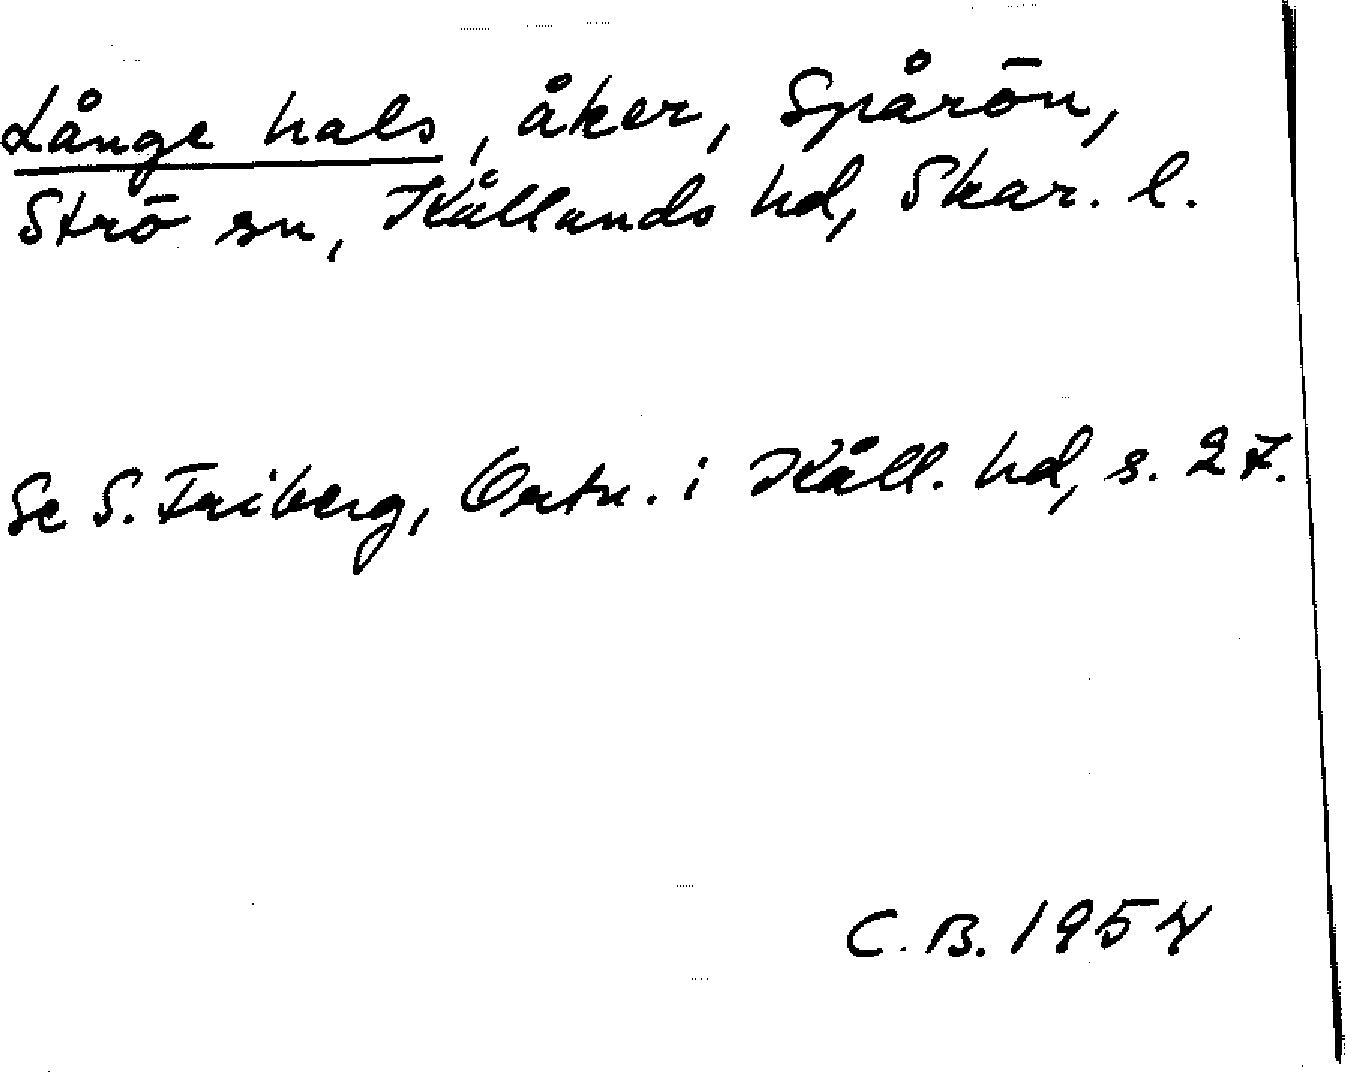 Långe hals, åker, Spårön,
Strö sn, Kållands hd, Skar. l.
Se S. Friberg, Ortn. i Kåll. hd, s. 27.
C. B. 1954